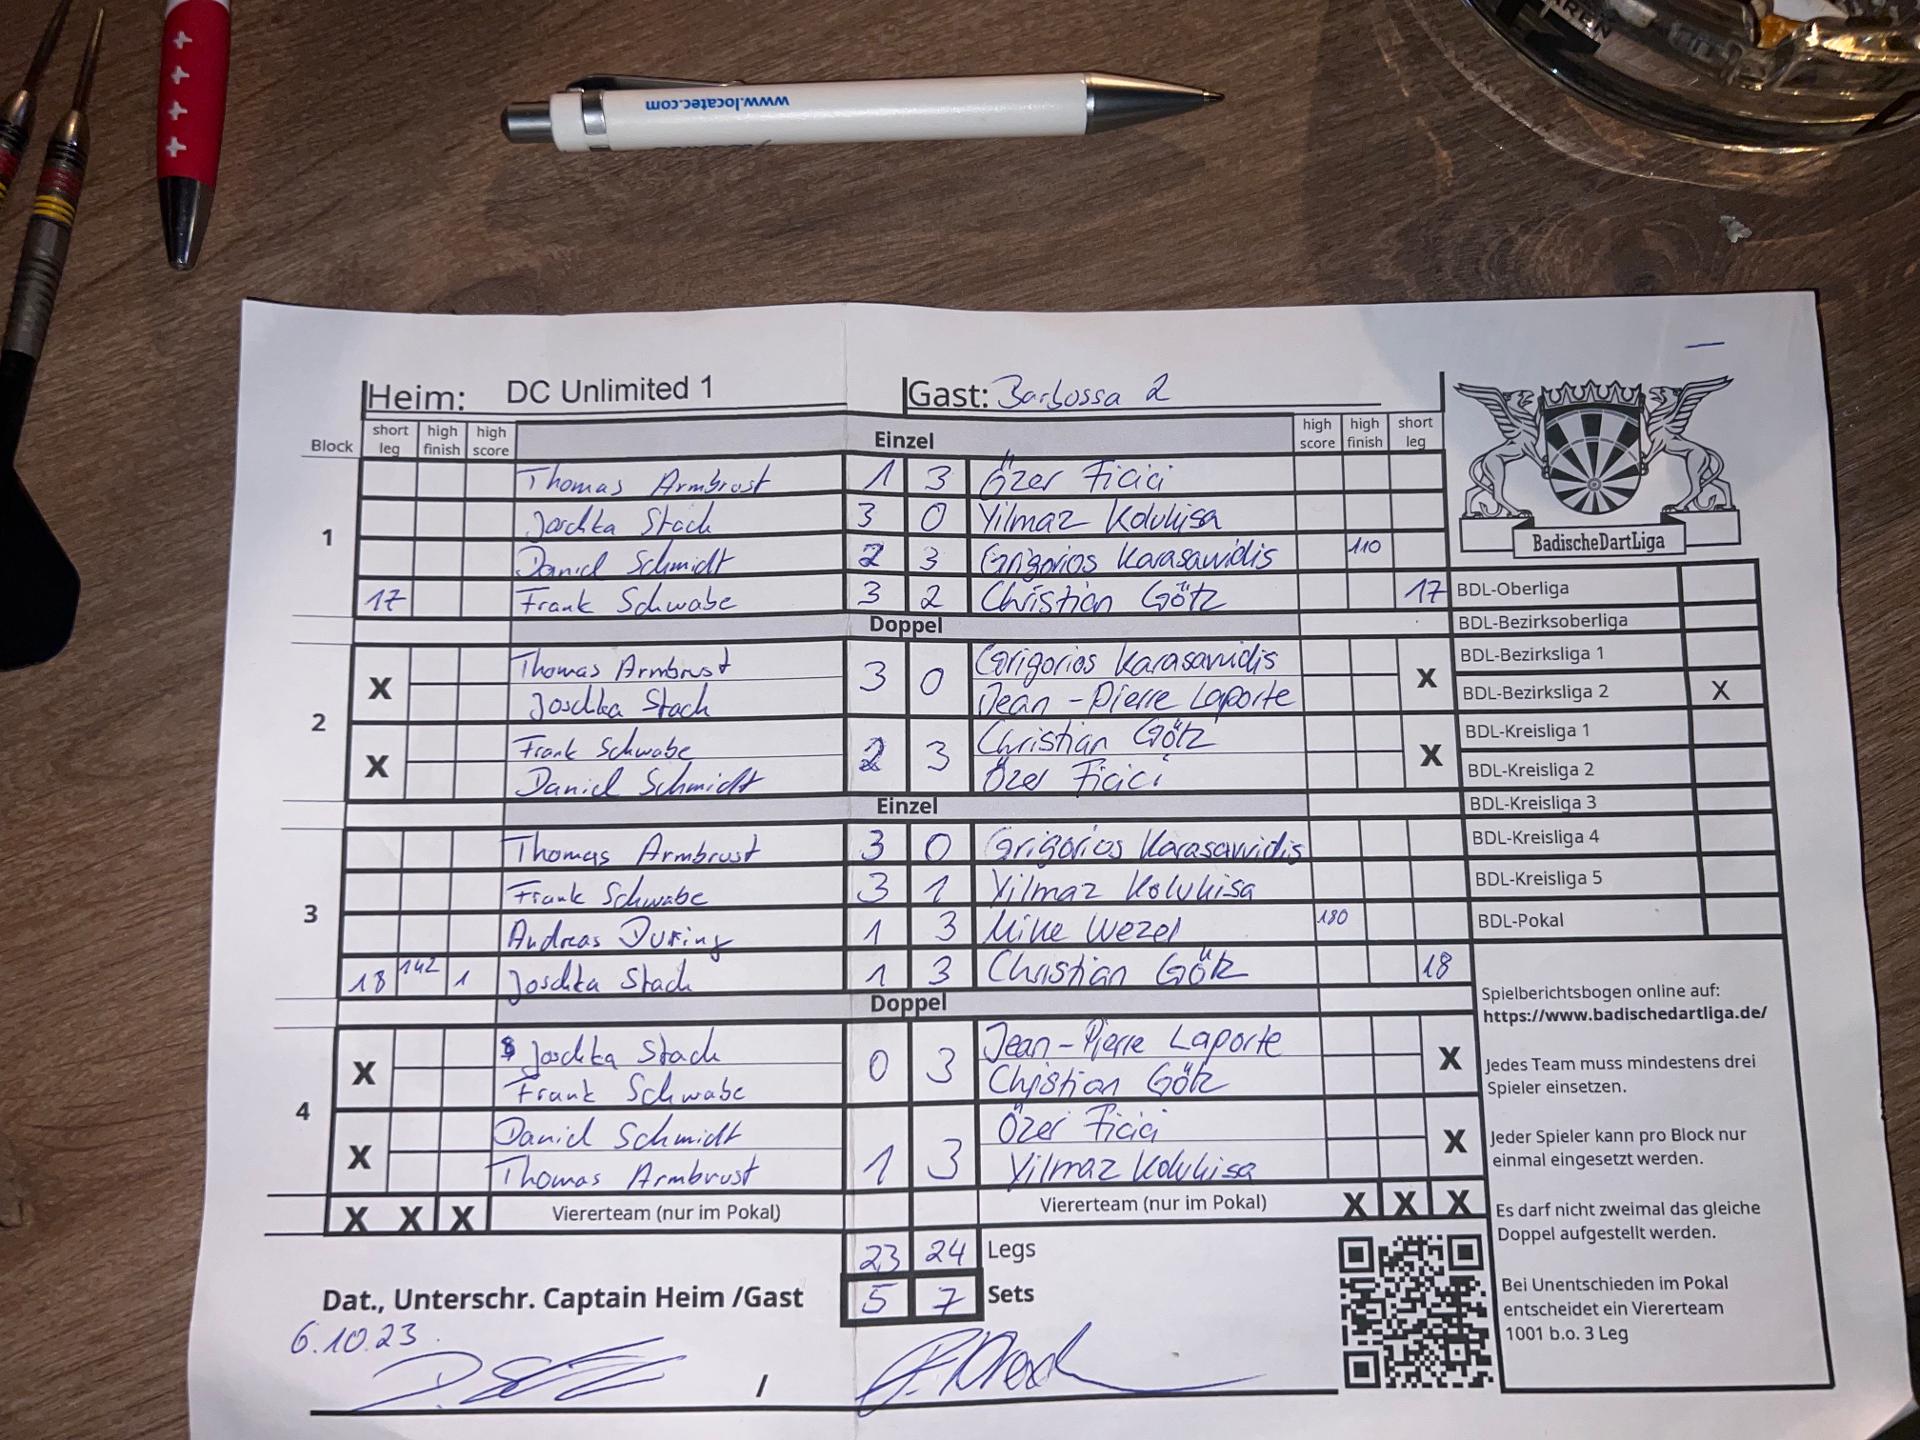 www.locatec.com
Heim: DC Unlimited 1 Gast: Barbossa 2
Block short leg high finish high score Einzel high score high finish short leg
1
Thomas Armbrust 1 3 Özer Ficici
Joschka Stach 3 0 Yilmaz Kolukisa
Daniel Schmidt 2 3 Grigorios Karasavvidis 110
17 Frank Schwabe 3 2 Christian Götz 17
Doppel
2
X Thomas Armbrust 3 0 Grigorios Karasavvidis X
Joschka Stach Jean-Pierre Laporte
X Frank Schwabe 2 3 Christian Götz X
Daniel Schmidt Özer Ficici
Einzel
3
Thomas Armbrust 3 0 Grigorios Karasavvidis
Frank Schwabe 3 1 Yilmaz Kolukisa
Andreas Düring 1 3 Mike Wezel 180
18 142 1 Joschka Stach 1 3 Christian Götz 18
Doppel
4
X Joschka Stach 0 3 Jean-Pierre Laporte X
Frank Schwabe Christian Götz
X Daniel Schmidt 1 3 Özer Ficici X
Thomas Armbrust Yilmaz Kolukisa
X X X Viererteam (nur im Pokal) Viererteam (nur im Pokal) X X X
23 24 Legs
5 7 Sets
Dat., Unterschr. Captain Heim /Gast
6.10.23
/
BadischeDartLiga
BDL-Oberliga
BDL-Bezirksoberliga
BDL-Bezirksliga 1
BDL-Bezirksliga 2 X
BDL-Kreisliga 1
BDL-Kreisliga 2
BDL-Kreisliga 3
BDL-Kreisliga 4
BDL-Kreisliga 5
BDL-Pokal
Spielberichtsbogen online auf:
https://www.badischedartliga.de/
Jedes Team muss mindestens drei
Spieler einsetzen.
Jeder Spieler kann pro Block nur
einmal eingesetzt werden.
Es darf nicht zweimal das gleiche
Doppel aufgestellt werden.
Bei Unentschieden im Pokal
entscheidet ein Viererteam
1001 b.o. 3 Leg